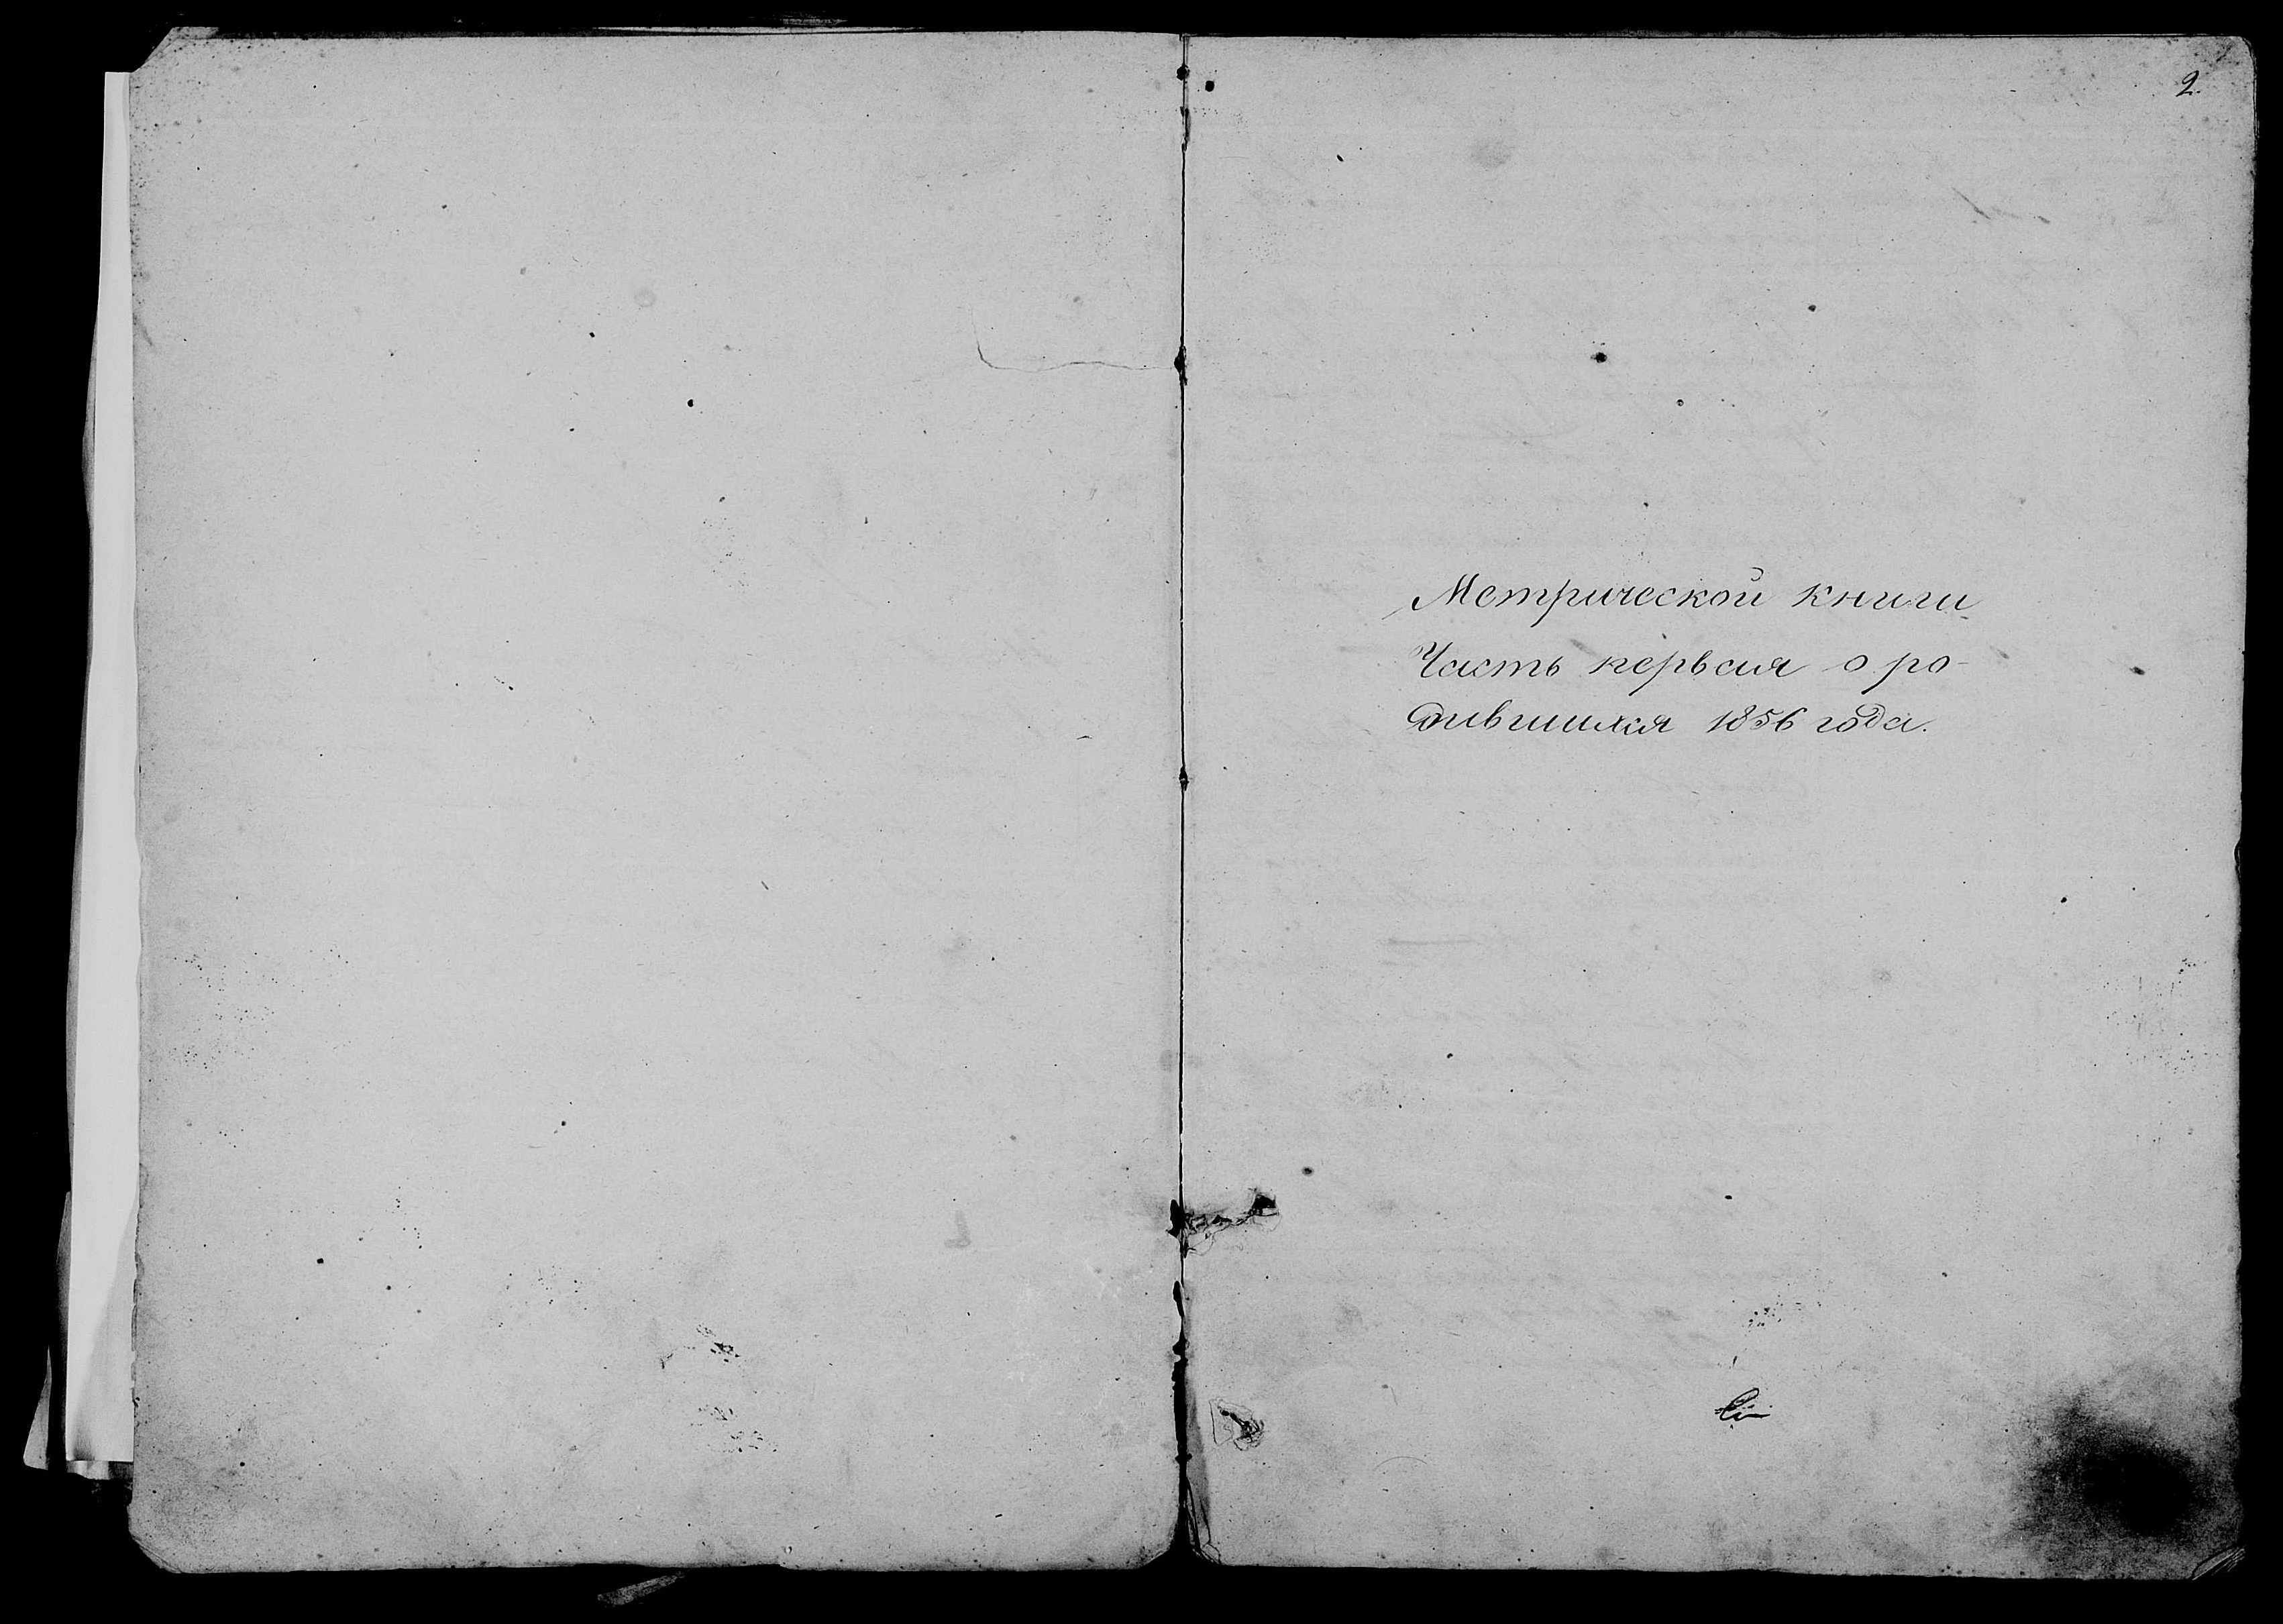 2
Метрической книги
Часть первая о ро-
дившихся 1856 года.